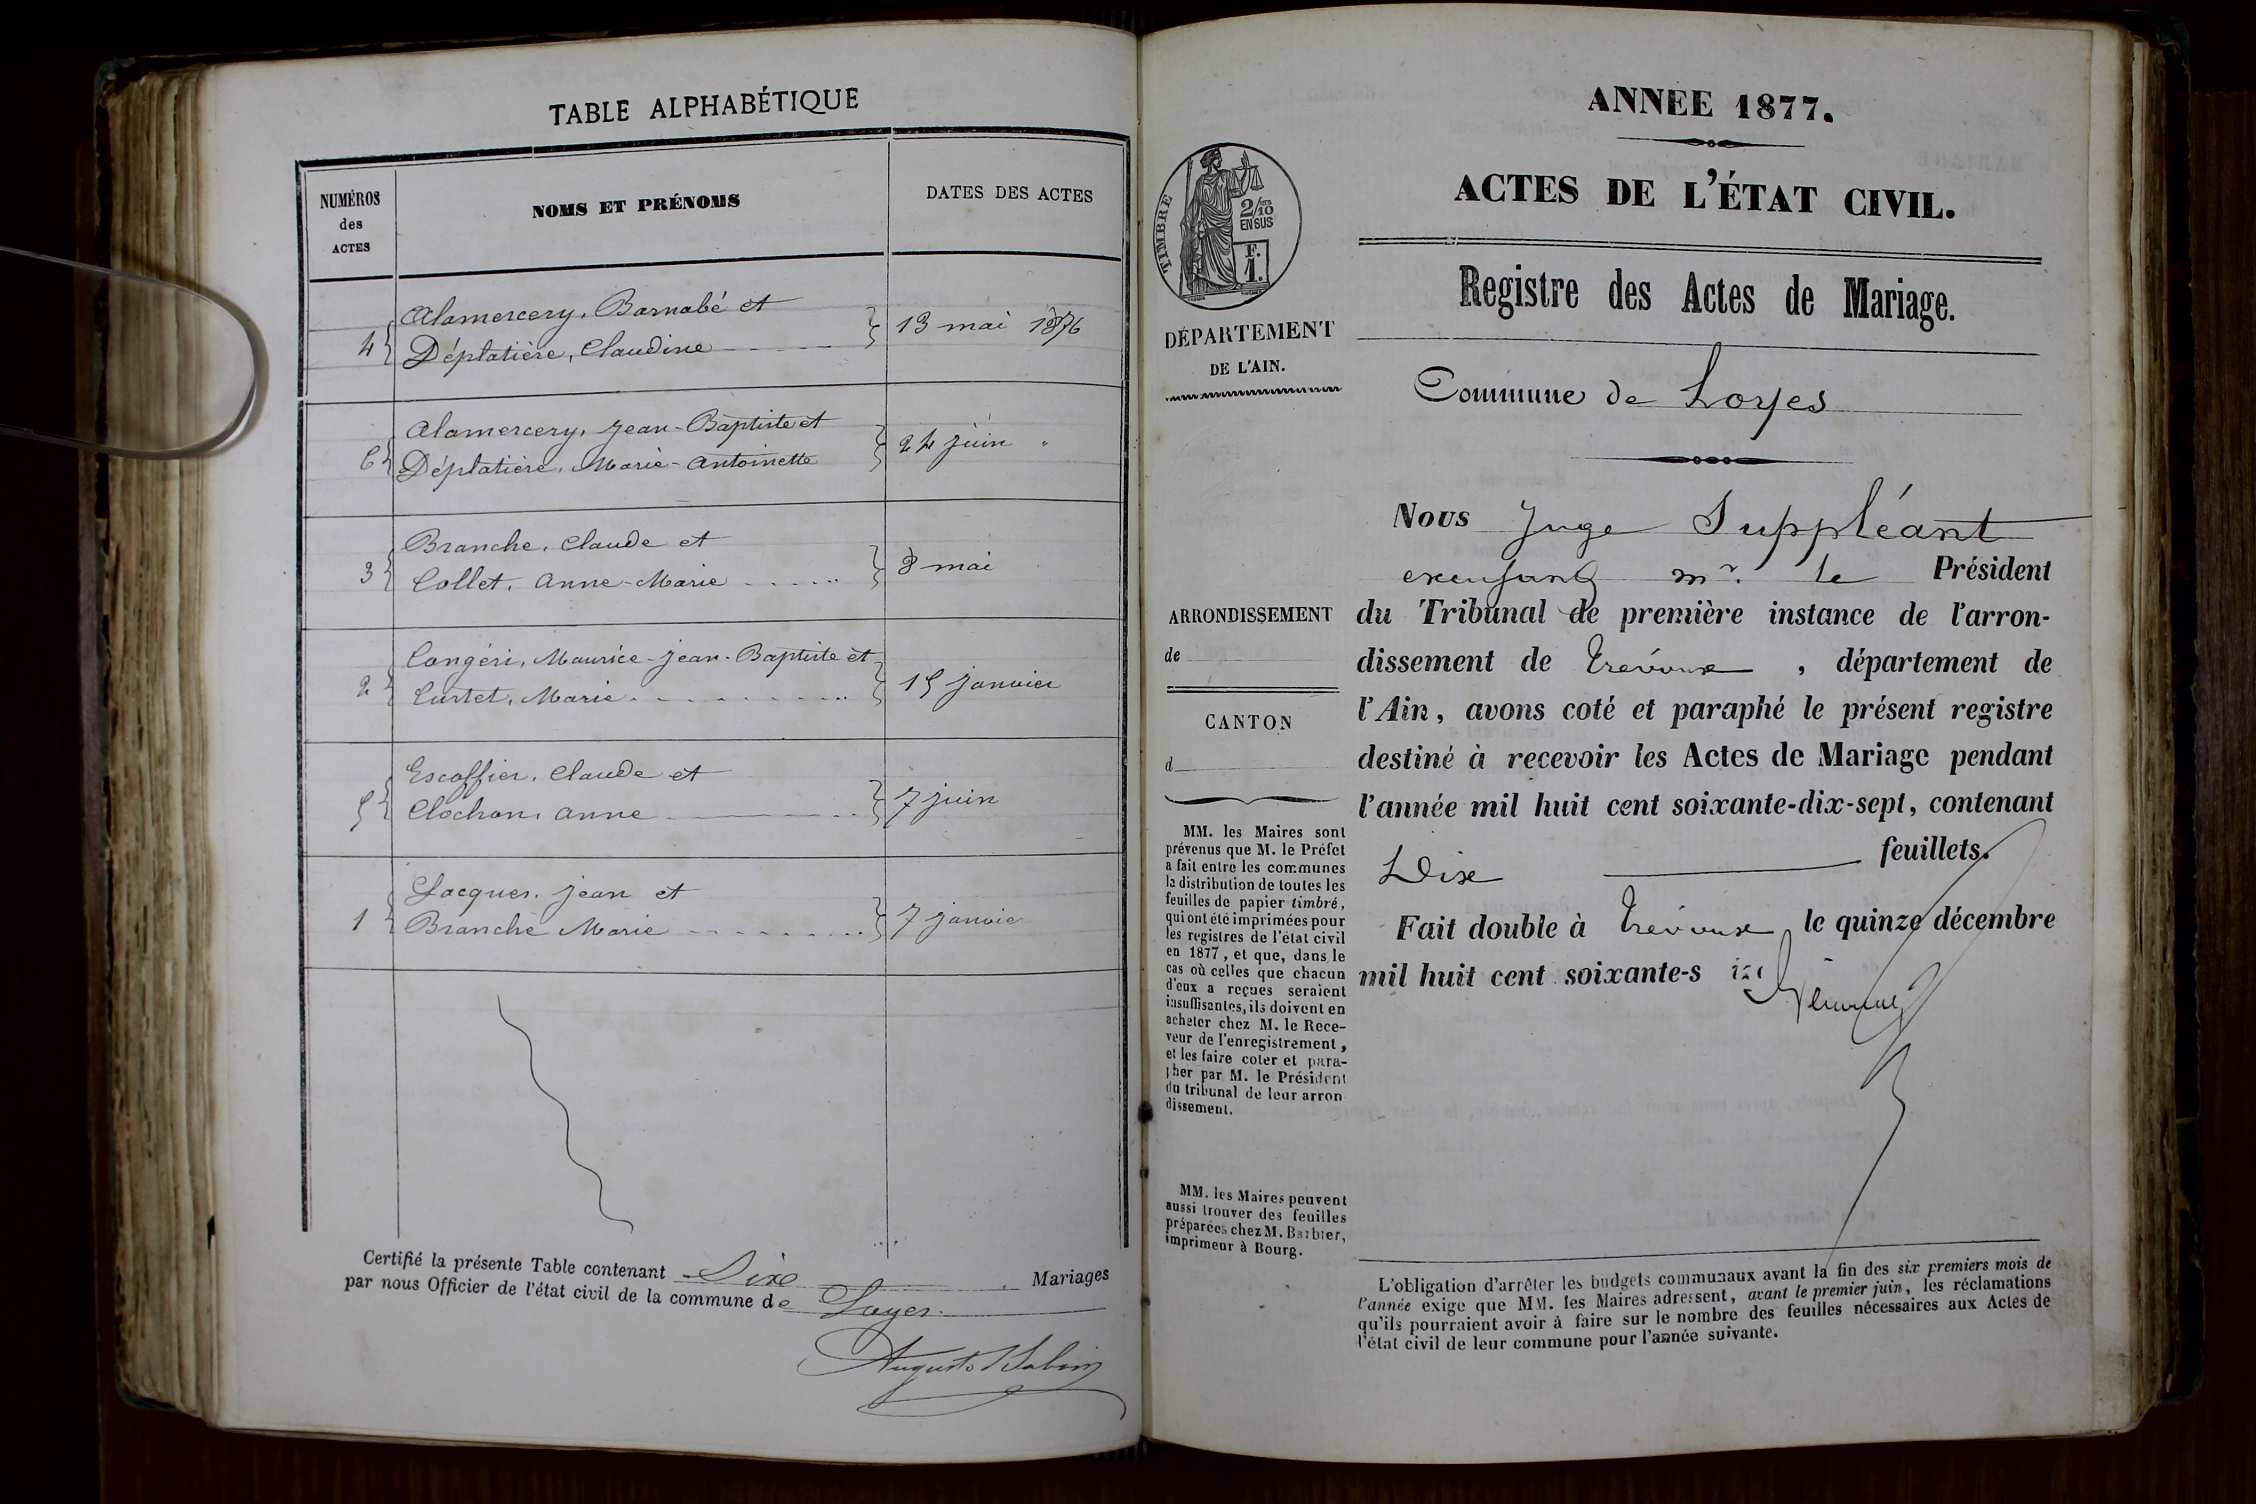 TABLE ALPHABÉTIQUE
NUMÉROS
des
ACTES
NOMS ET PRÉNOMS
DATES DES ACTES
Alamercery, Barnabé et
4 Déplatière, Claudine 13 mai 1876
Alamercery, Jean-Baptiste et
6 Déplatière, Marie-Antoinette 24 juin "
Branche, Claude et
3 Collet, Anne-Marie 8 mai
Congéri, Maurice-Jean-Baptiste et
2 Curtet, Marie 15 janvier
Escoffier, Claude et
5 Clochon, Anne 7 juin
Jacques, Jean et
1 Branche Marie 7 janvier
Certifié la présente Table contenant Six Mariages
par nous Officier de l'état civil de la commune de Loyes
Auguste
ANNÉE 1877.
ACTES DE L'ÉTAT CIVIL.
Registre des Actes de Mariage.
TIMBRE
2/10
EN SUS
F.
1.
DÉPARTEMENT
DE L'AIN.
Commune de Loyes
Nous Juge Suppléant
excusant mr. le Président
du Tribunal de première instance de l'arron-
dissement de Trévoux, département de
l'Ain, avons coté et paraphé le présent registre
destiné à recevoir les Actes de Mariage pendant
l'année mil huit cent soixante-dix-sept, contenant
Dix feuillets.
Fait double à Trévoux, le quinze décembre
mil huit cent soixante-s ize
ARRONDISSEMENT
de
CANTON
d
MM. les Maires sont
prévenus que M. le Préfet
a fait entre les communes
la distribution de toutes les
feuilles de papier timbré,
qui ont été imprimées pour
les registres de l'état civil
en 1877, et que, dans le
cas où celles que chacun
d'eux a reçues seraient
insuffisantes, ils doivent en
acheter chez M. le Rece-
veur de l'enregistrement,
et les faire coter et para-
pher par M. le Président
du tribunal de leur arron
dissement.
MM. les Maires peuvent
aussi trouver des feuilles
préparées chez M. Barbier,
imprimeur à Bourg.
L'obligation d'arrêter les budgets communaux avant la fin des six premiers mois de
l'année exige que MM. les Maires adressent, avant le premier juin, les réclamations
qu'ils pourraient avoir à faire sur le nombre des feuilles nécessaires aux Actes de
l'état civil de leur commune pour l'année suivante.